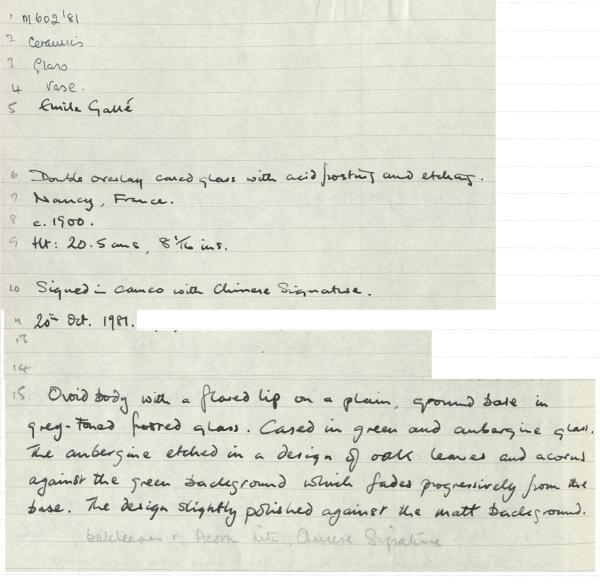 1 M602'81
2 Ceramics
3 Glass
4 Vase.
5 Emile Gallé
6 Double overlay cased glass with acid frosting and etching.
7 Nancy, France.
8 c. 1900.
9 Ht: 20.5 cms, 8 1/16 ins.
10 Signed in cameo with Chinese Signature.
11 20th Oct. 1981.
13
14
15 Ovoid body with a flared lip on a plain, ground base in
grey-toned frosted glass. Cased in green and aubergine glass.
The aubergine etched in a design of oak leaves and acorns
against the green background which fades progressively from the
base. The design slightly polished against the matt background.
Oakleaves + Acorn Chinese Signature